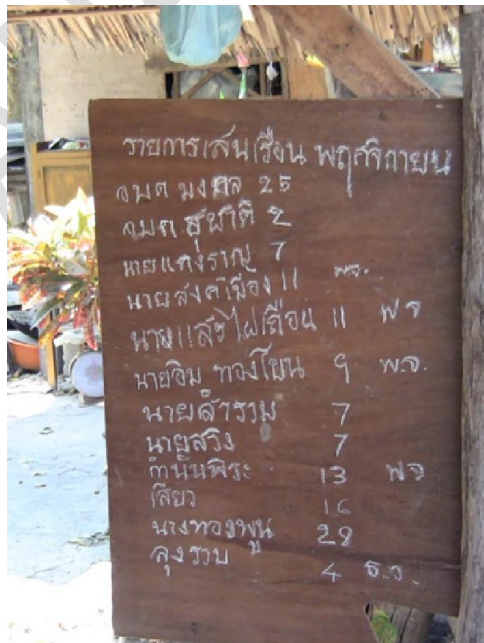 รายการเล่นเรือน พฤศจิกายน
อบต มงคล 25
อบต สุชาติ 2
นายแกงราญ 7
นายสงค์เมือง 11 พจ.
นายแสวไผ่เถื่อน 11 พจ
นายอิ่ม ทองโยน 9 พจ.
นายสำรวม 7
นายสวิง 7
กำนันพิระ 13 พจ
เสียว 16
นางทองพูน 29
ลุงรวบ 4 ธ.ว.